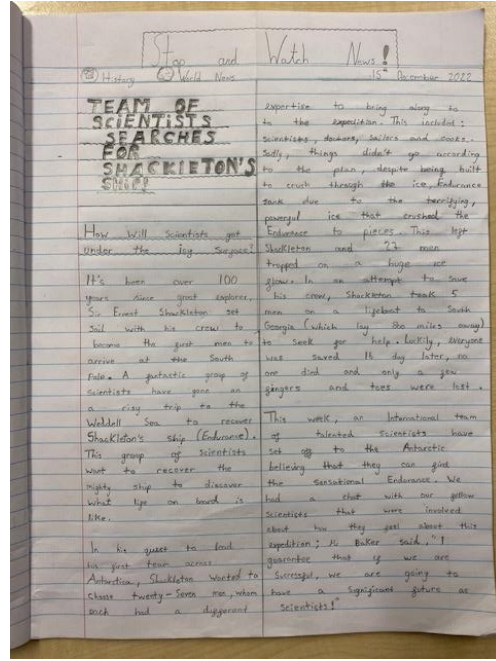 Stop and Watch News!
History World News 15th December 2022
TEAM OF
SCIENTISTS
SEARCHES
FOR
SHACKLETON'S
SHIP!
How will scientists get
under the icy surface?
It's been over 100
years since great explorer,
Sir Ernest Shackleton set
sail with his crew to
become the first men to
arrive at the South
Pole. A fantastic group of
scientists have gone on
a risy trip to the
Weddell Sea to recover
Shackleton's ship (Endurance).
This group of scientists
want to recover the
mighty ship to discover
what life on board is
like.
In his quest to lead
his first team across
Antarctica, Shackleton wanted to
choose twenty-seven men, whom
each had a different
expertise to bring along to
to the expedition. This included:
scientists, doctors, sailors and cooks.
Sadly, things didn't go according
to the plan, despite being built
to crush through the ice, Endurance
sank due to the terrifying,
powerful ice that crushed the
Endurance to pieces. This left
Shackleton and 27 men
trapped on a huge ice
flows. In an attempt to save
his crew, Shackleton took 5
men on a lifeboat to South
Georgia (which lay 800 miles away)
to seek for help. Luckily, everyone
was saved 16 day later, no
one died and only a few
fingers and toes were lost.
This week, an International team
of talented scientists have
set off to the Antarctic
believing that they can find
the sensational Endurance. We
had a chat with our fellow
scientists that were involved
about how they feel about this
expedition; Mr Baker said, "I
guarantee that if we are
successful, we are going to
have a significant future as
scientists!"